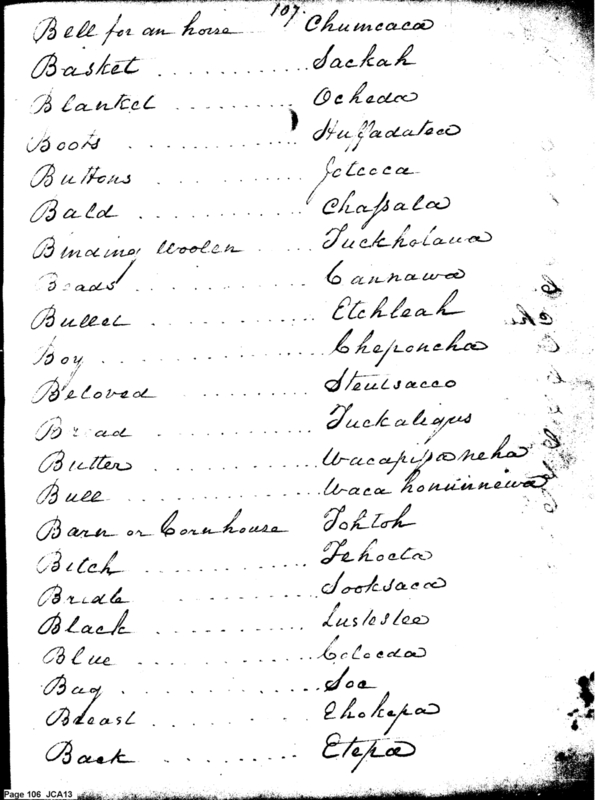 107.
Bell for an horse Chumcaca
Basket ............ Sackah
Blanket .......... Ocheda
Boots .............. Huffadateca
Buttons ........... Jotcoca
Bald ............ Chaſsala
Binding Woolen ... Tuckholaua
Beads ............ Cannawa
Bullet ........... Etchleah
Boy ............... Cheponcha
Beloved .......... Steutsacco
Bread ............ Tuckaligus
Butter ........... Wacapiſsaneha
Bull ............. Waca honunnewa
Barn or Cornhouse Tohtoh
Bitch ............ Fehocta
Bridle ........... Sooksaca
Black ........... Lusteslee
Blue ............
Bag .............. Soc
Breast .......... Ehokepa
Back .......... Etepa
Page 106 JCA13